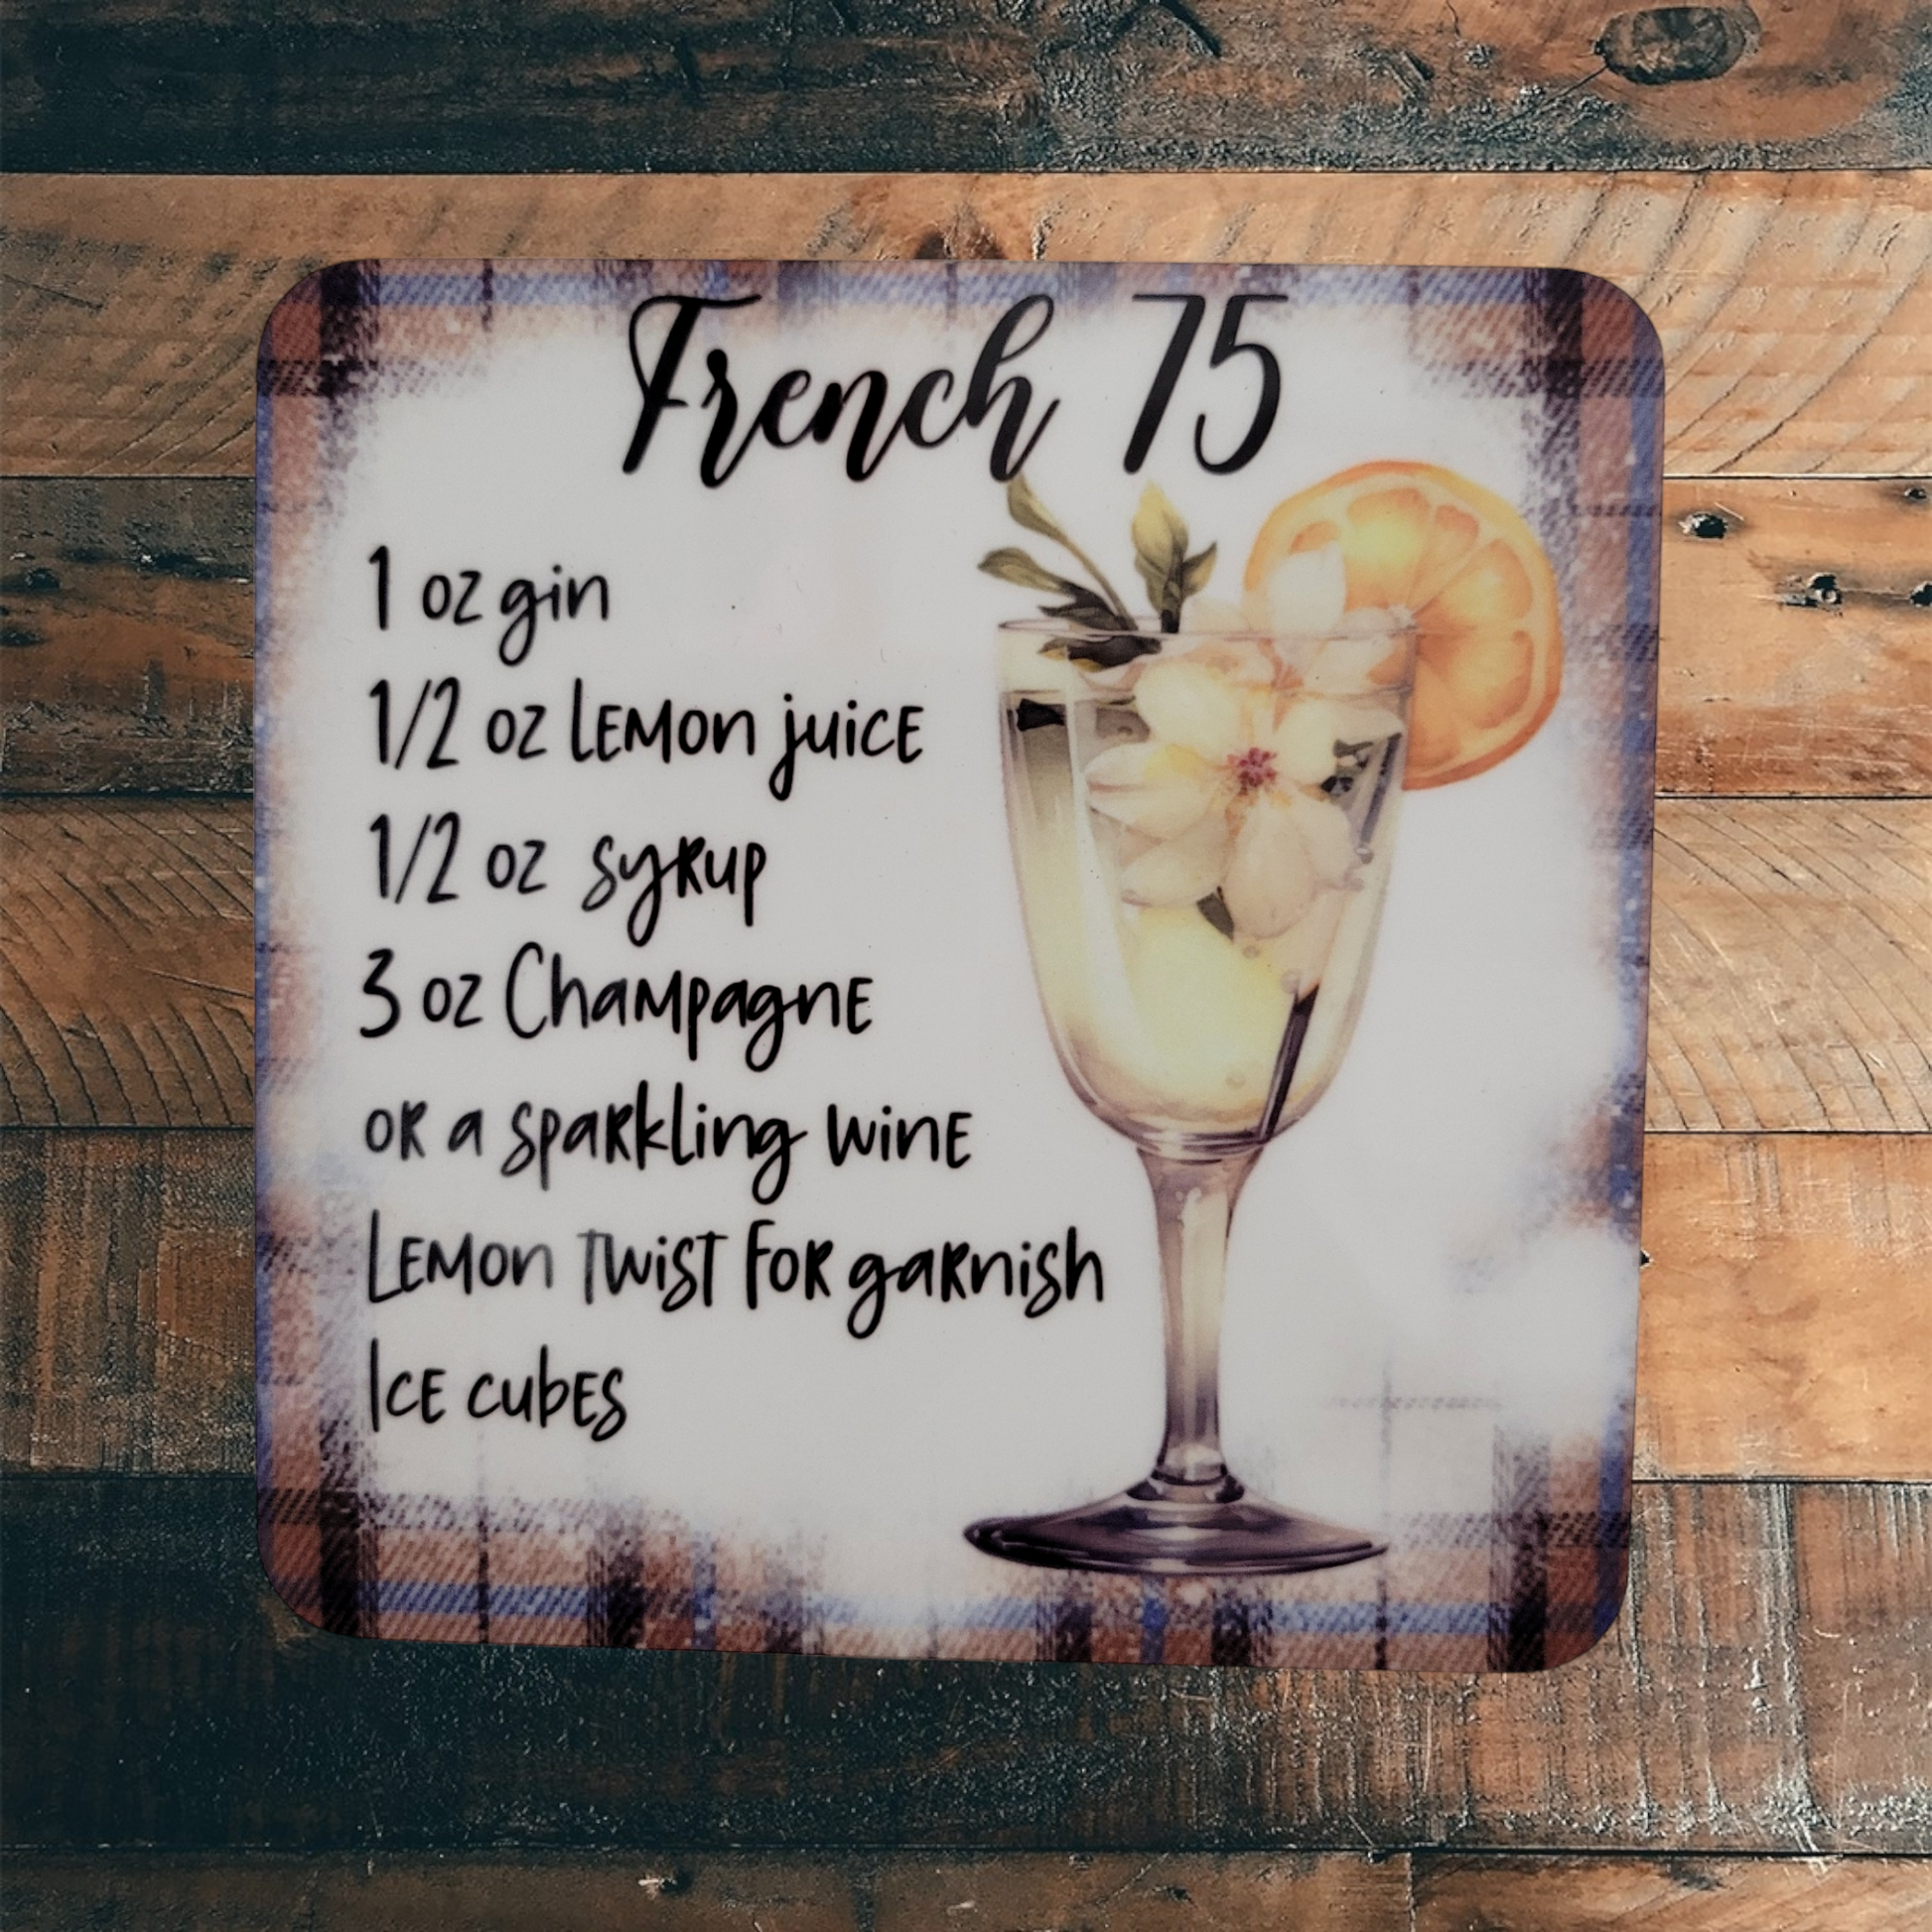 French 75
1 oz gin
1/2 oz Lemon juice
1/2 oz syrup
3 oz Champagne
or a sparkling wine
Lemon twist for garnish
Ice cubes